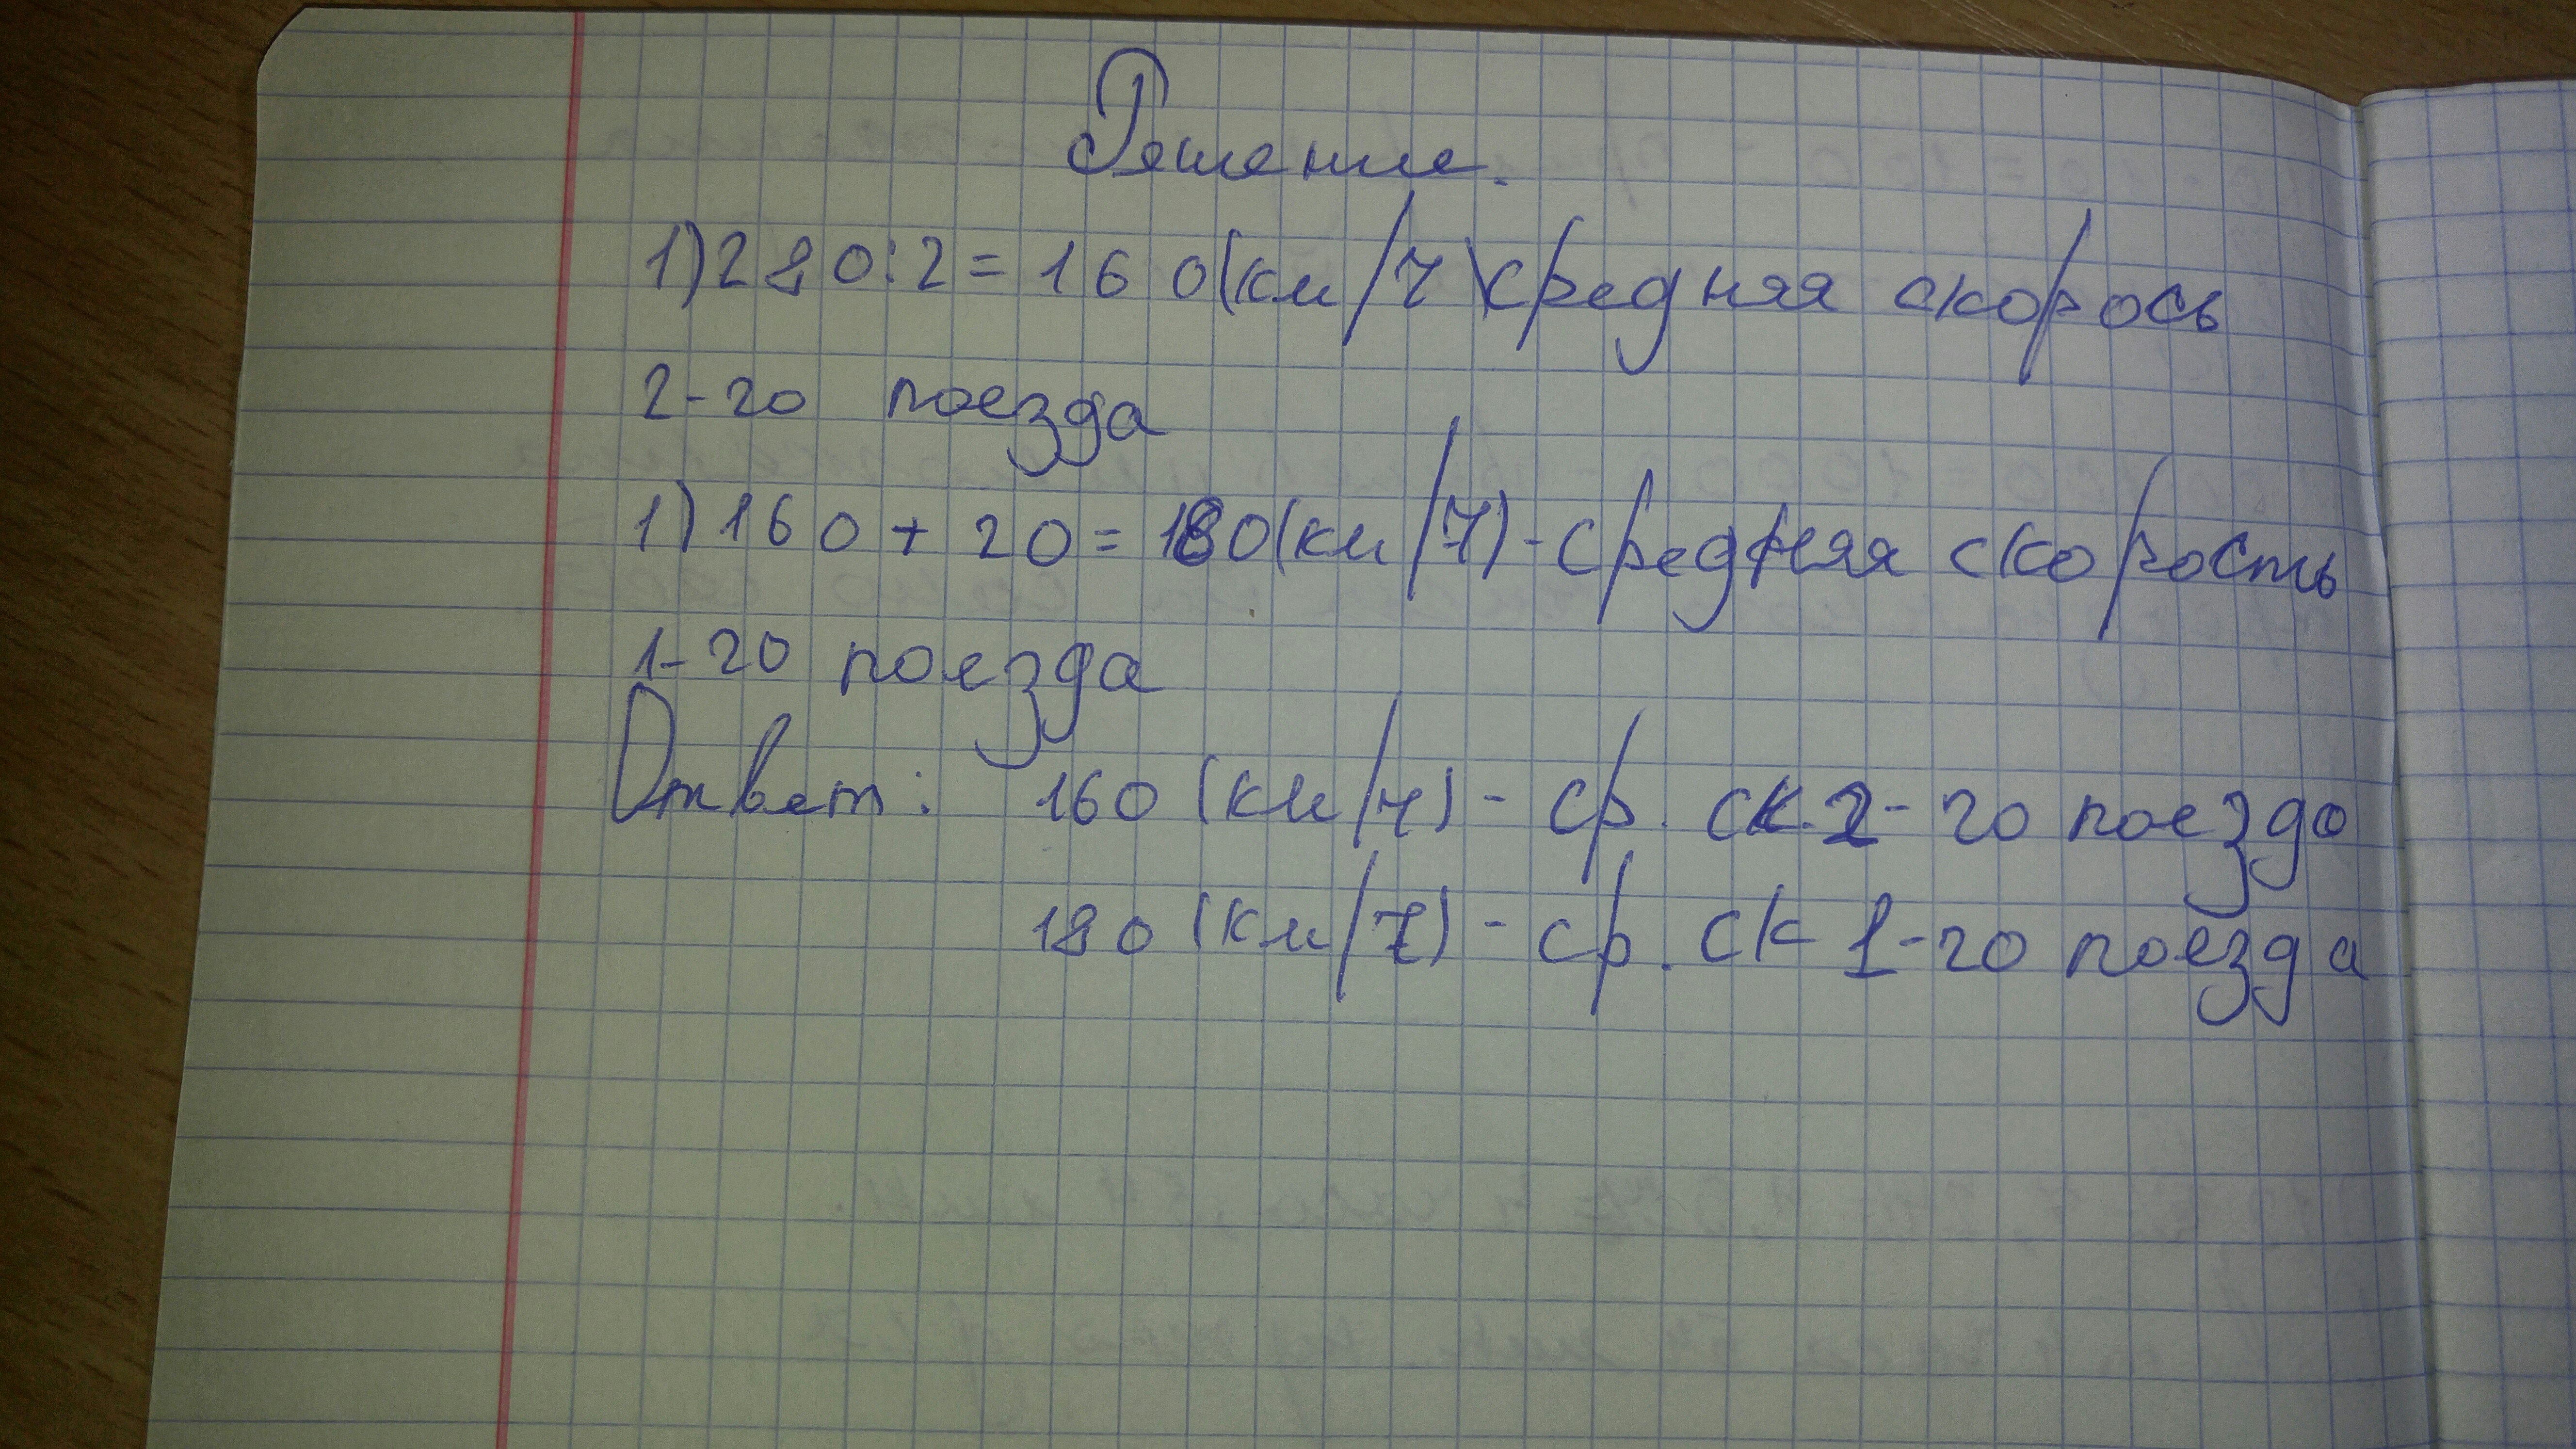 Решение.
1) 280:2=160(км/ч)средняя скорось
2-го поезда
1) 160+20=180(км/ч)-средняя скорость
1-го поезда
Ответ: 160 (км/ч) - ср. ск. 2-го поездо
180 (км/ч) - ср. ск 1-го поезда